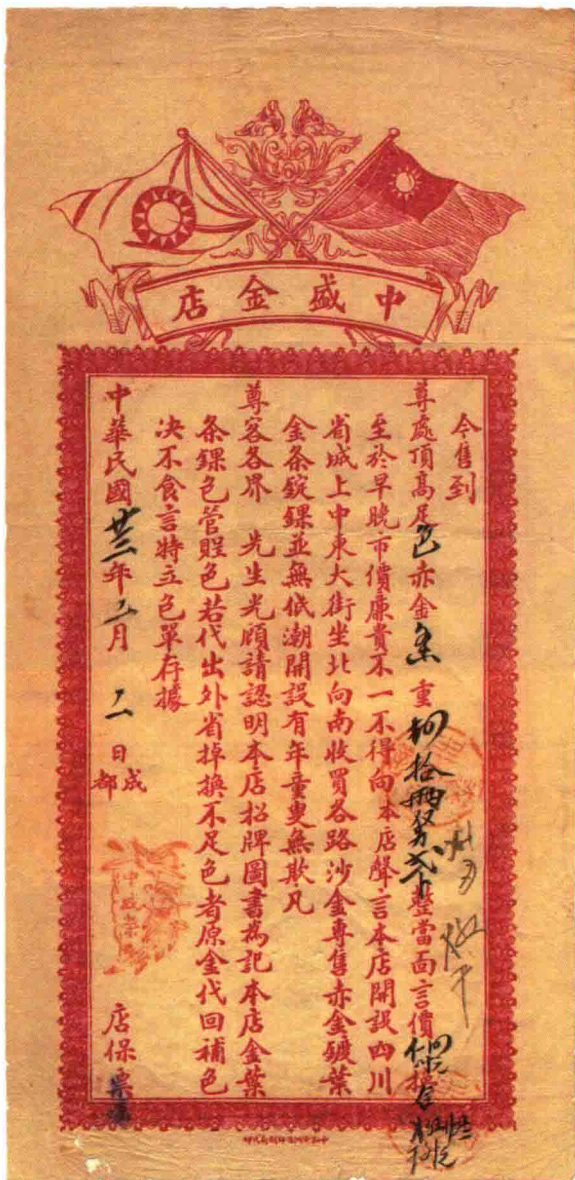 中盛金店
今售到
尊處頂高足色赤金 重 拾兩 整當面言價
至於早晚市價廉貴不一不得向本店聲言本店開設四川
省城上中東大街坐北向南收買各路沙金專售赤金鍍葉
金条錠錁並無低潮開設有年童叟無欺凡
尊客各界 先生光顧請認明本店招牌圖書為記本店金葉
条錁色管眰色若代出外省掉換不足色者原金代回補色
决不食言特立色單存據
中華民國廿三年 月 日成都
店保票